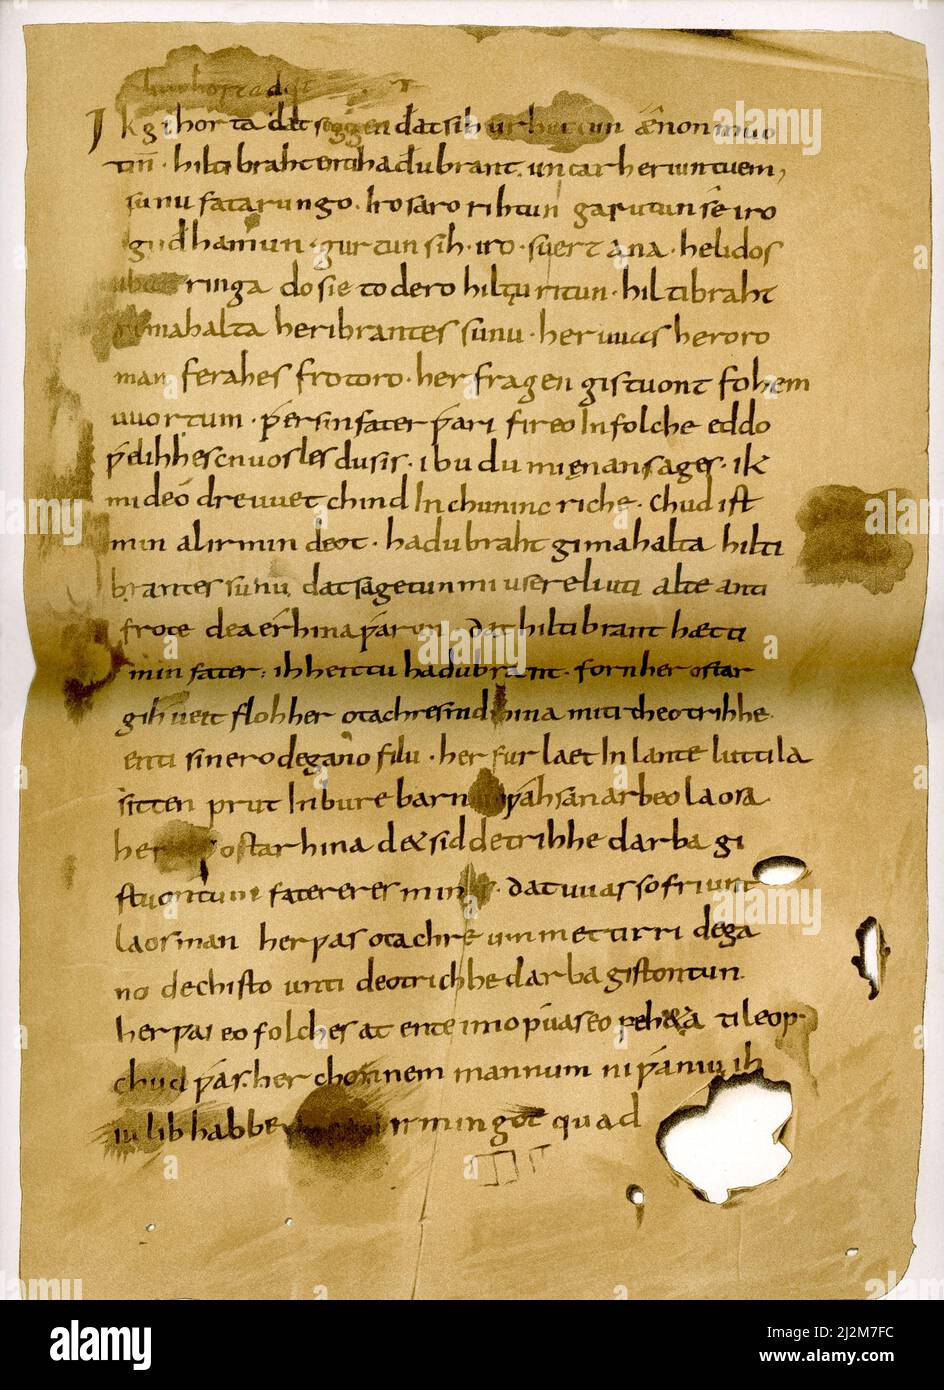 Ik gihorta đat seggen đat sih urhettun ænon muo
tin · hiltibraht enti hađubrant · untar heriuntuem,
sunu fatarungo · iro saro rihtun garutun sê iro
guđhamun · gurtun sih · iro · suert ana · helidos
ubar ringa do sie to dero hiltu ritun · hiltibraht
gimahalta heribrantes sunu · her uuas heroro
man ferahes frotoro · her fragen gistuont fohem
uuortum · ƿer sin fater ƿari fireo In folche eddo
ƿelihhes cnuosles du sis · ibu du mi ęnan sages · ik
mideo dre uuet chind In chunincriche · Chud ist
min al irmindeot · hadubraht gimahalta hilti
brantes sunu dat sagetun mi usere liuti alte anti
frote dea érhina ƿarun dat hiltibrant hætti
min fater · ih heittu hadubrant · forn her ostar
gihueit floh her otachres nid hina miti theotrihhe
enti sinero degano filu · her furlaet In lante luttila
sitten prut In bure barn unƿahsan arbeo laosa
her ostar hina de&sid detrihhe darba gi
stuontum fatereres mines · dat uuas so friunt
laos man her ƿas otachre ummettirri dega
no dechisto unti deotrichhe darba gistontun
her ƿas eo folches at ente imo ƿuas eo ƿeh&a ti leop ·
chud ƿas · her chonnem mannum ni ƿaniu ih
iu lib habbe irmingot quad
alamy
Image ID: 2J2M7FC
www.alamy.com